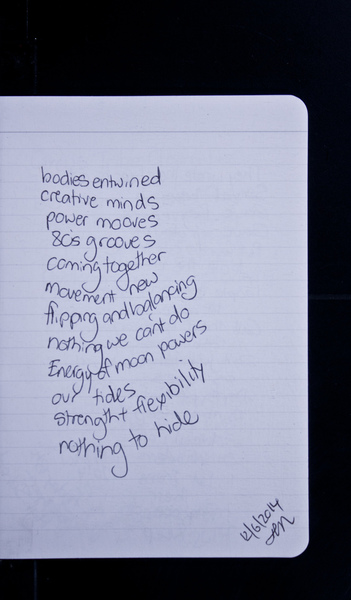 bodies entwined
creative minds
power mooves
80's grooves
coming together
movement new
flipping and balancing
nothing we can't do
Energy of moon powers
our tides
strenght flexibility
nothing to hide
12/6/2014
Jen